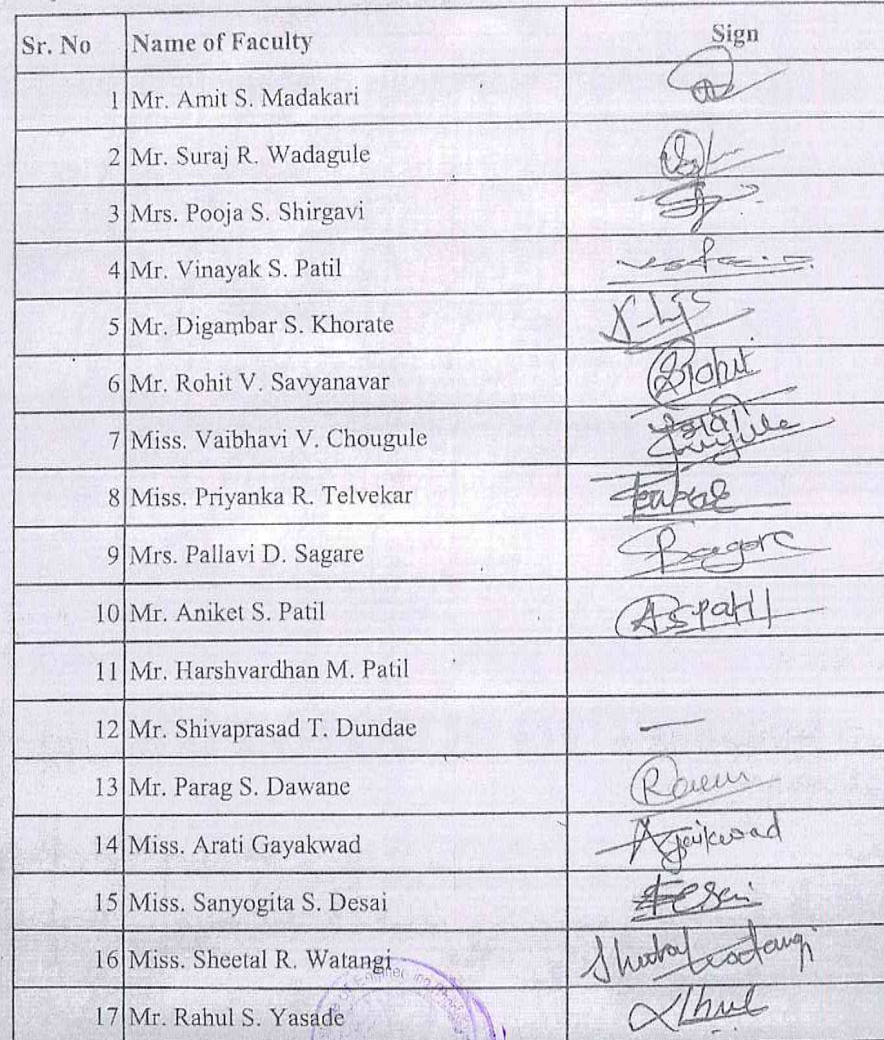 Sr. No Name of Faculty Sign
1 Mr. Amit S. Madakari
2 Mr. Suraj R. Wadagule
3 Mrs. Pooja S. Shirgavi
4 Mr. Vinayak S. Patil
5 Mr. Digambar S. Khorate
6 Mr. Rohit V. Savyanavar Rohit
7 Miss. Vaibhavi V. Chougule
8 Miss. Priyanka R. Telvekar
9 Mrs. Pallavi D. Sagare
10 Mr. Aniket S. Patil ASPatil
11 Mr. Harshvardhan M. Patil
12 Mr. Shivaprasad T. Dundae —
13 Mr. Parag S. Dawane
14 Miss. Arati Gayakwad
15 Miss. Sanyogita S. Desai Desai
16 Miss. Sheetal R. Watangi
17 Mr. Rahul S. Yasade